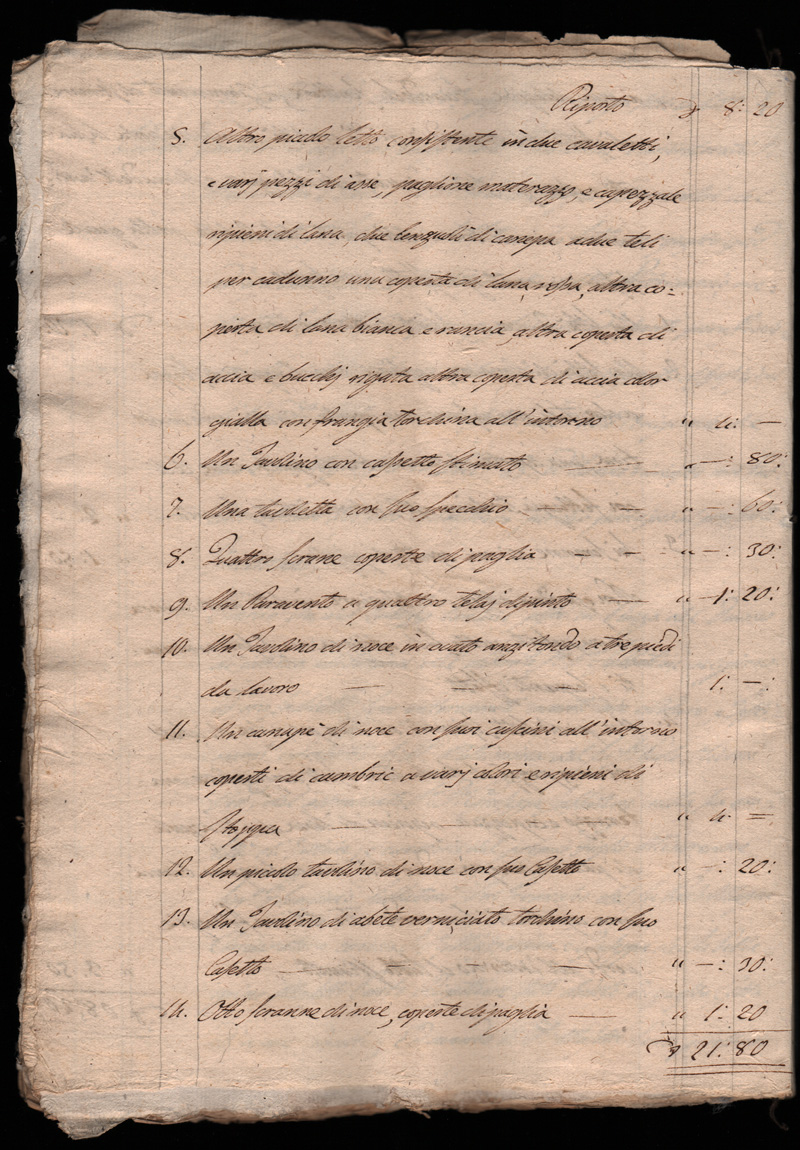 Riporto 8: 20
5. Altro piccolo letto consistente in due cavaletti,
e varj pezzi di asse, paglione materazzo, e capezzale
ripieni di lana, due lenzuoli di canepa a due teli
per cadauno una coperta di lana rossa, altra co=
perta di lana bianca e rancia, altra coperta di
accia e bucchj rigata altra coperta di accia color
gialla con frangia torchina all'intorno " 4: —
6. Un Tavolino con cassetto stimato — " —: 80:
7. Una tavoletta con suo specchio — " —: 60:
8. Quattro scrane coperte di paglia — — " —: 30:
9. Un Paravento a quattro telaj dipinto — " 1: 20:
10. Un Tavolino di noce in ovato anzi tondo a tre piedi
da lavoro — — — 1: —:
11. Un canapè di noce con suoi cussini all'intorno
coperti di cambric a varj colori e ripieni di
stoppa — — — " 4: =
12. Un piccolo tavolino di noce con suo Casetto " —: 20:
13. Un Tavolino di abete verniciato torchino con suo
Casetto — — — — " —: 30:
14. Otto scranne di noce, coperte di paglia — " 1: 20
21: 80